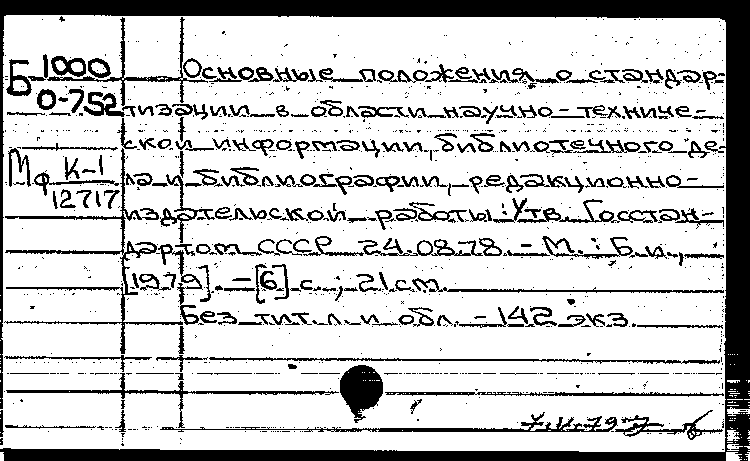 Б 1000
О-752
Мф К-1
12717
Основные положения о стандар-
тизации в области научно-техниче-
ской информации, библиотечного де-
ла и библиографии, редакционно-
издательской работы: Утв. Госстан-
дартом СССР 24.08.78. - М. : Б.и.,
[1979]. - [6] с. ; 21 см.
Без тит. л. и обл. - 142 экз.